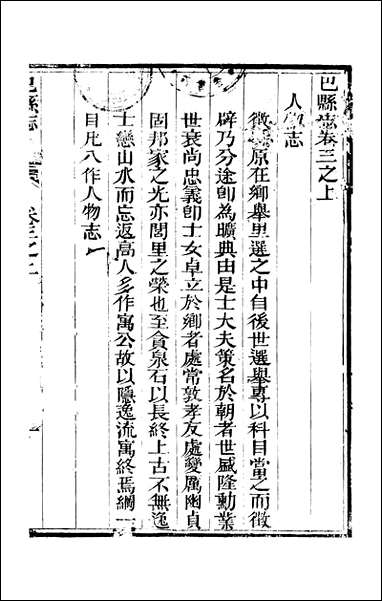 巴縣志卷三之上
人物志
徵辟原在鄉舉里選之中自後世選舉專以科目當之而徵
辟乃分途卽為曠典由是士大夫策名於朝者世盛隆勳業
世衰尚忠義卽士女卓立於鄉者處常敦孝友處變厲幽貞
固邦家之光亦閭里之榮也至貪泉石以長終上古不無逸
士戀山水而忘返高人多作寓公故以隱逸流寓終焉綱一
目凡八作人物志
巴縣志